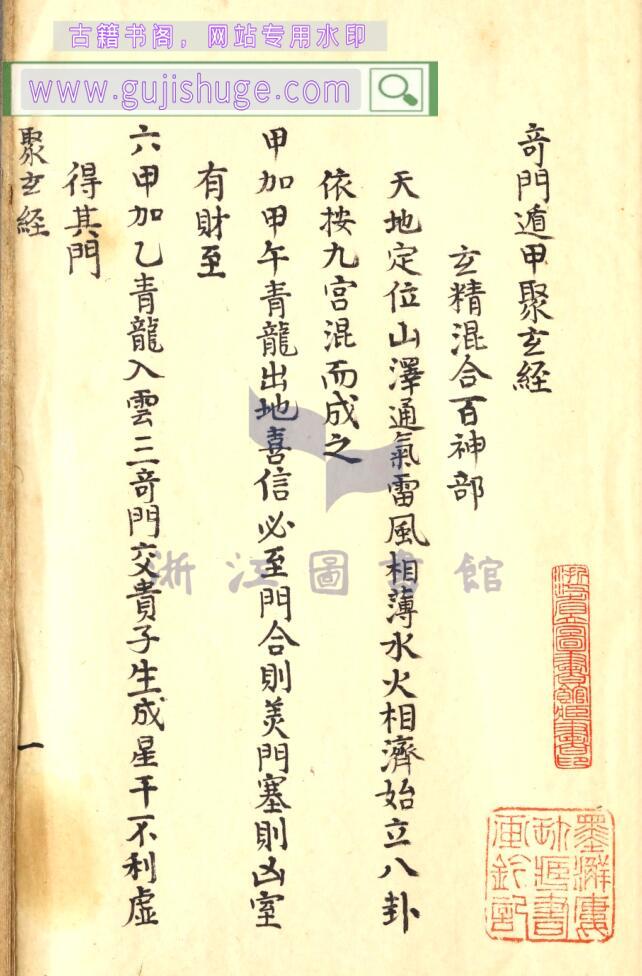 古籍书阁，网站专用水印
www.gujishuge.com
奇門遁甲聚玄経
玄精混合百神部
天地定位山澤通氣雷風相薄水火相濟始立八卦
依按九宮混而成之
甲加甲午青龍出地喜信必至門合則美門塞則凶室
有財至
六甲加乙青龍入雲三奇門交貴子生成星干不利虛
得其門
聚玄経
一
浙江圖書館